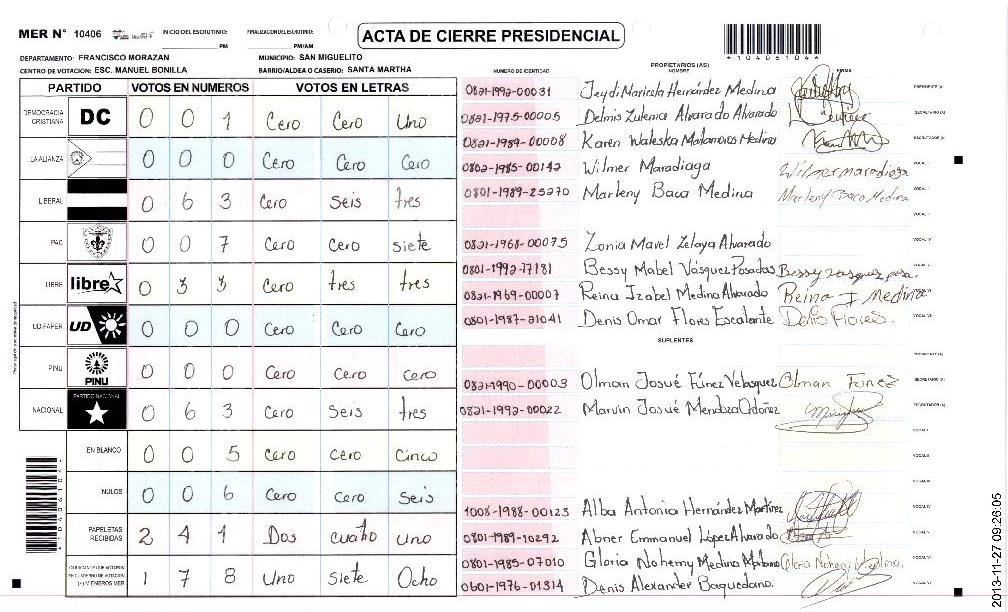 MER N° 10406 INICIO DEL ESCRUTINIO: PM FINALIZACION DEL ESCRUTINIO: PM/AM
ACTA DE CIERRE PRESIDENCIAL
*10406104*
DEPARTAMENTO: FRANCISCO MORAZAN MUNICIPIO: SAN MIGUELITO
CENTRO DE VOTACION: ESC. MANUEL BONILLA BARRIO/ALDEA O CASERIO: SANTA MARTHA
PARTIDO VOTOS EN NUMEROS VOTOS EN LETRAS
DEMOCRACIA CRISTIANA DC 0 0 1 Cero Cero Uno
LA ALIANZA 0 0 0 Cero Cero Cero
LIBERAL 0 6 3 Cero Seis tres
PAC 0 0 7 Cero Cero siete
LIBRE libre 0 3 3 Cero tres tres
UD-FAPER UD 0 0 0 Cero Cero Cero
PINU PINU 0 0 0 Cero Cero cero
NACIONAL PARTIDO NACIONAL 0 6 3 Cero Seis tres
EN BLANCO 0 0 5 Cero cero Cinco
NULOS 0 0 6 Cero cero Seis
PAPELETAS RECIBIDAS 2 4 1 Dos cuatro uno
CIUDADANOS QUE VOTARON EN CUADERNO DE VOTACION (+) MIEMBROS MER 1 7 8 Uno Siete Ocho
NUMERO DE IDENTIDAD PROPIETARIOS (AS) NOMBRE FIRMA
0821-1992-00031 Jeydi Maricela Hernández Medina PRESIDENTE (A)
0801-1975-00005 Delmis Zulenia Alvarado Alvarado SECRETARIO (A)
0821-1989-00008 Karen Waleska Matamoros Medina ESCRUTADOR (A)
0802-1985-00142 Wilmer Maradiaga Wilmer maradiaga VOCAL I
0801-1989-25270 Marleny Baca Medina Marleny Baca Medina VOCAL II
0821-1968-00075 Zonia Mavel Zelaya Alvarado VOCAL IV
0801-1992-17181 Bessy Mabel Vásquez Posadas Bessy vasquez posa. VOCAL V
0821-1969-00007 Reina Izabel Medina Alvarado Reina I Medina VOCAL VI
0801-1987-21041 Denis Omar Flores Escalante Denis Flores. VOCAL VII
SUPLENTES
PRESIDENTE (A)
0821-1990-00003 Olman Josué Fúnez Velasquez Olman Funez SECRETARIO (A)
0821-1992-00022 Marvin Josué Mendoza Ordonez ESCRUTADOR (A)
VOCAL I
VOCAL II
VOCAL III
1008-1988-00123 Alba Antonia Hernández Martínez VOCAL IV
0801-1989-10292 Abner Emmanuel López Alvarado VOCAL V
0801-1985-07010 Gloria Nohemy Medina VOCAL VI
0601-1976-01314 Denis Alexander Baquedano. VOCAL VII
*10406104*
2013-11-27 09:26:05